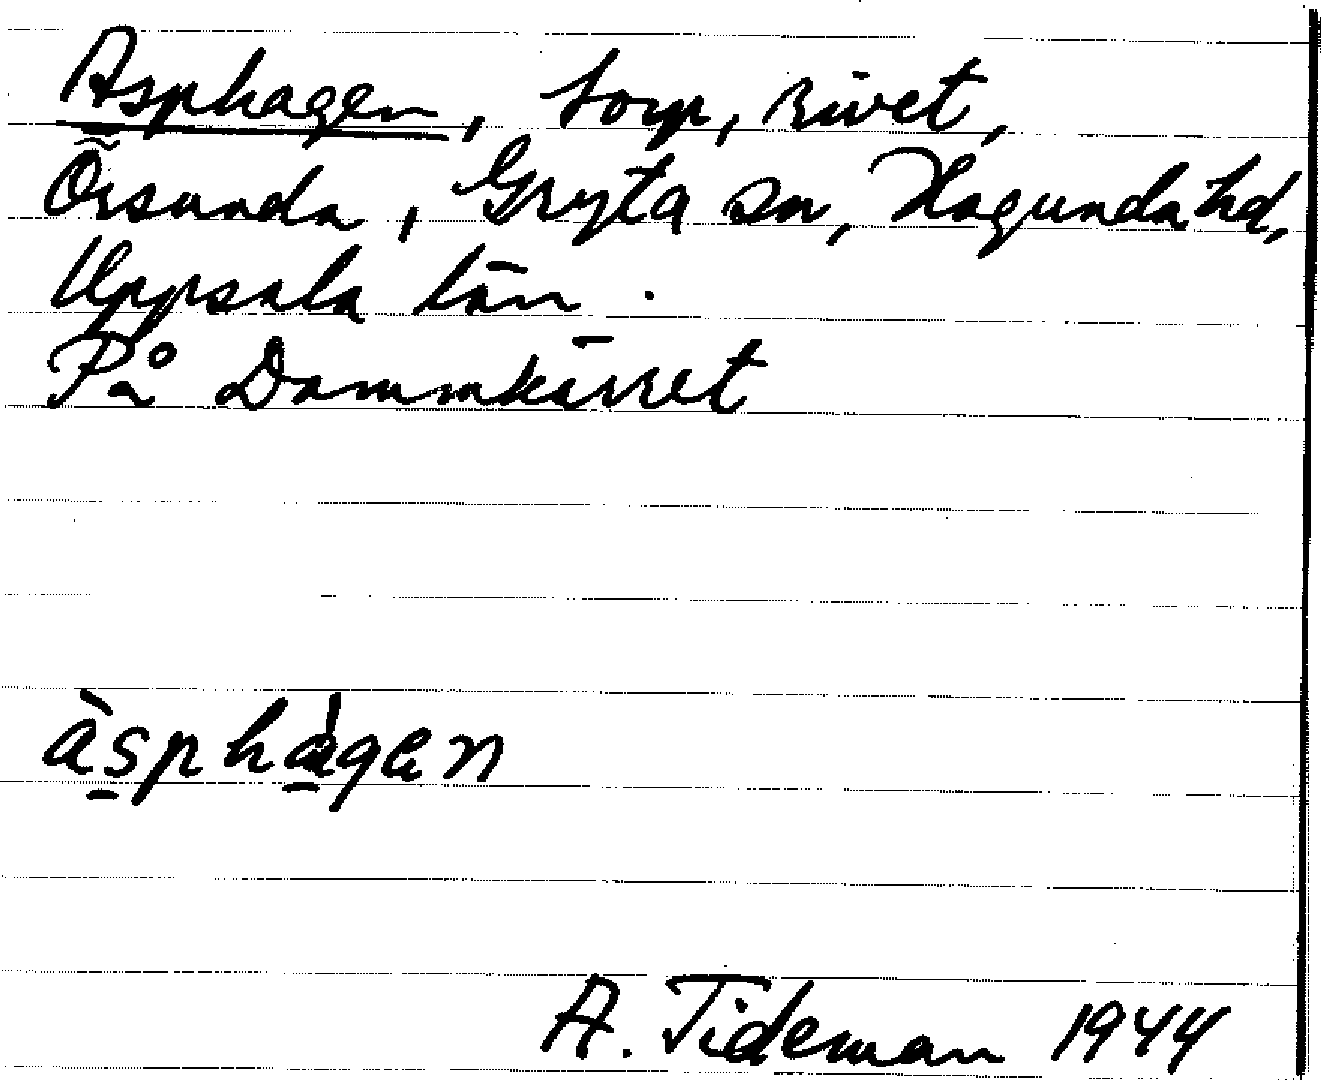 Asphagen, torp, rivet,
Örsunda, Gryta sn, Hagunda hd,
Uppsala län.
På Dammkärret
àsphágen
A. Tideman 1944